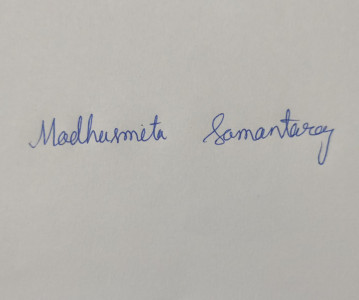 Madhusmita Samantaray